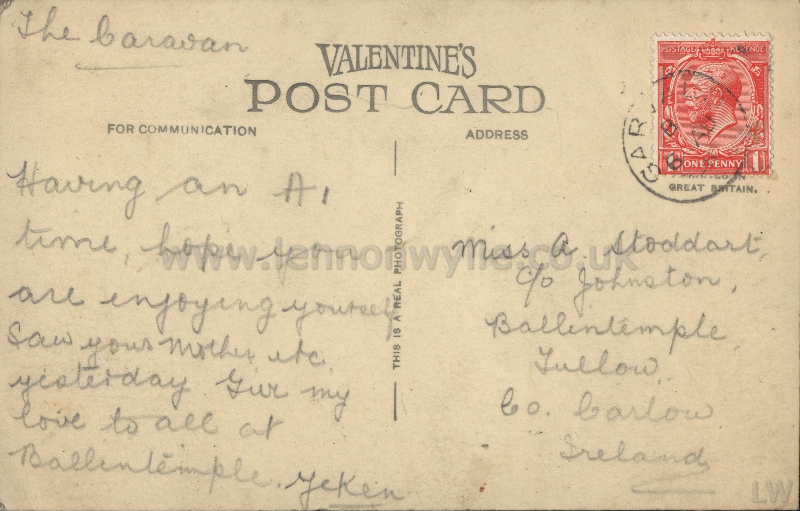 The Caravan
VALENTINE'S
POST CARD
FOR COMMUNICATION
ADDRESS
POSTAGE REVENUE
ONE PENNY
1 1
GREAT BRITAIN.
Having an A1
time, hope you
are enjoying yourself
Saw your Mother etc
yesterday. Give my
love to all at
Ballentemple. Ken
THIS IS A REAL PHOTOGRAPH
Miss A. Stoddart,
c/o Johnston,
Ballentemple,
Tullow,
Co. Carlow
Ireland
www.lennonwylie.co.uk
LW